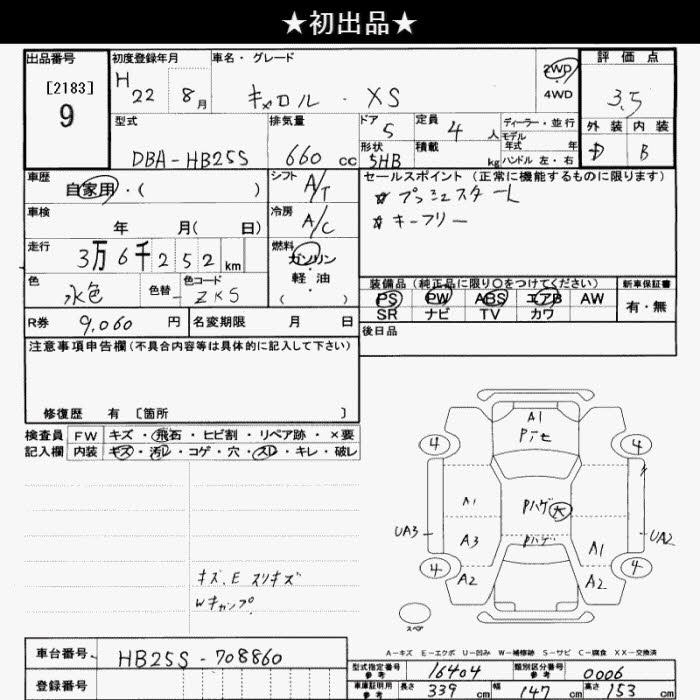 ★初出品★
出品番号
[2183]
9
初度登録年月
H 22 8月
車名・グレード
キャロル ・ XS
2WD
4WD
評価点
3.5
外装 内装
D B
型式
DBA-HB25S
排気量
660 cc
ドア
5
形状
5HB
定員
4 人
積載
kg
ディーラー・並行
モデル
年式 年
ハンドル 左・右
車歴
自家用・( )
シフト
A/T
セールスポイント (正常に機能するものに限ります)
☆プッシュスタート
☆キーフリー
車検
年 月( 日)
冷房
A/C
走行
3万6千252km
燃料
ガソリン
軽・油
( )
色
水色
色替
色コード
ZKS
装備品 (純正品に限り○をつけてください)
PS PW ABS エアB AW
SR ナビ TV カワ
新車保証書
有・無
R券 9,060 円
名変期限 月 日
後日品
注意事項申告欄(不具合内容等は具体的に記入して下さい)
修復歴 有 [箇所 ]
検査員
記入欄
FW キズ・飛石・ヒビ割・リペア跡・×要
内装 キズ・汚レ・コゲ・穴・スレ・キレ・破レ
A1
Pテモ
4 4
A1
Pハゲ 大
UA3
A3
Pハゲ
A1
UA2
4 4
A2
A2
スペア
キズ、E スリキズ
Wキャンプ
A-キズ E-エクボ U-凹み W-補修跡 S-サビ C-腐食 XX-交換済
車台番号 HB25S-708860
登録番号
型式指定番号
参考
16404
類別区分番号
参考
0006
車庫証明用
参考
長さ 339 cm 幅 147 cm 高さ 153 cm